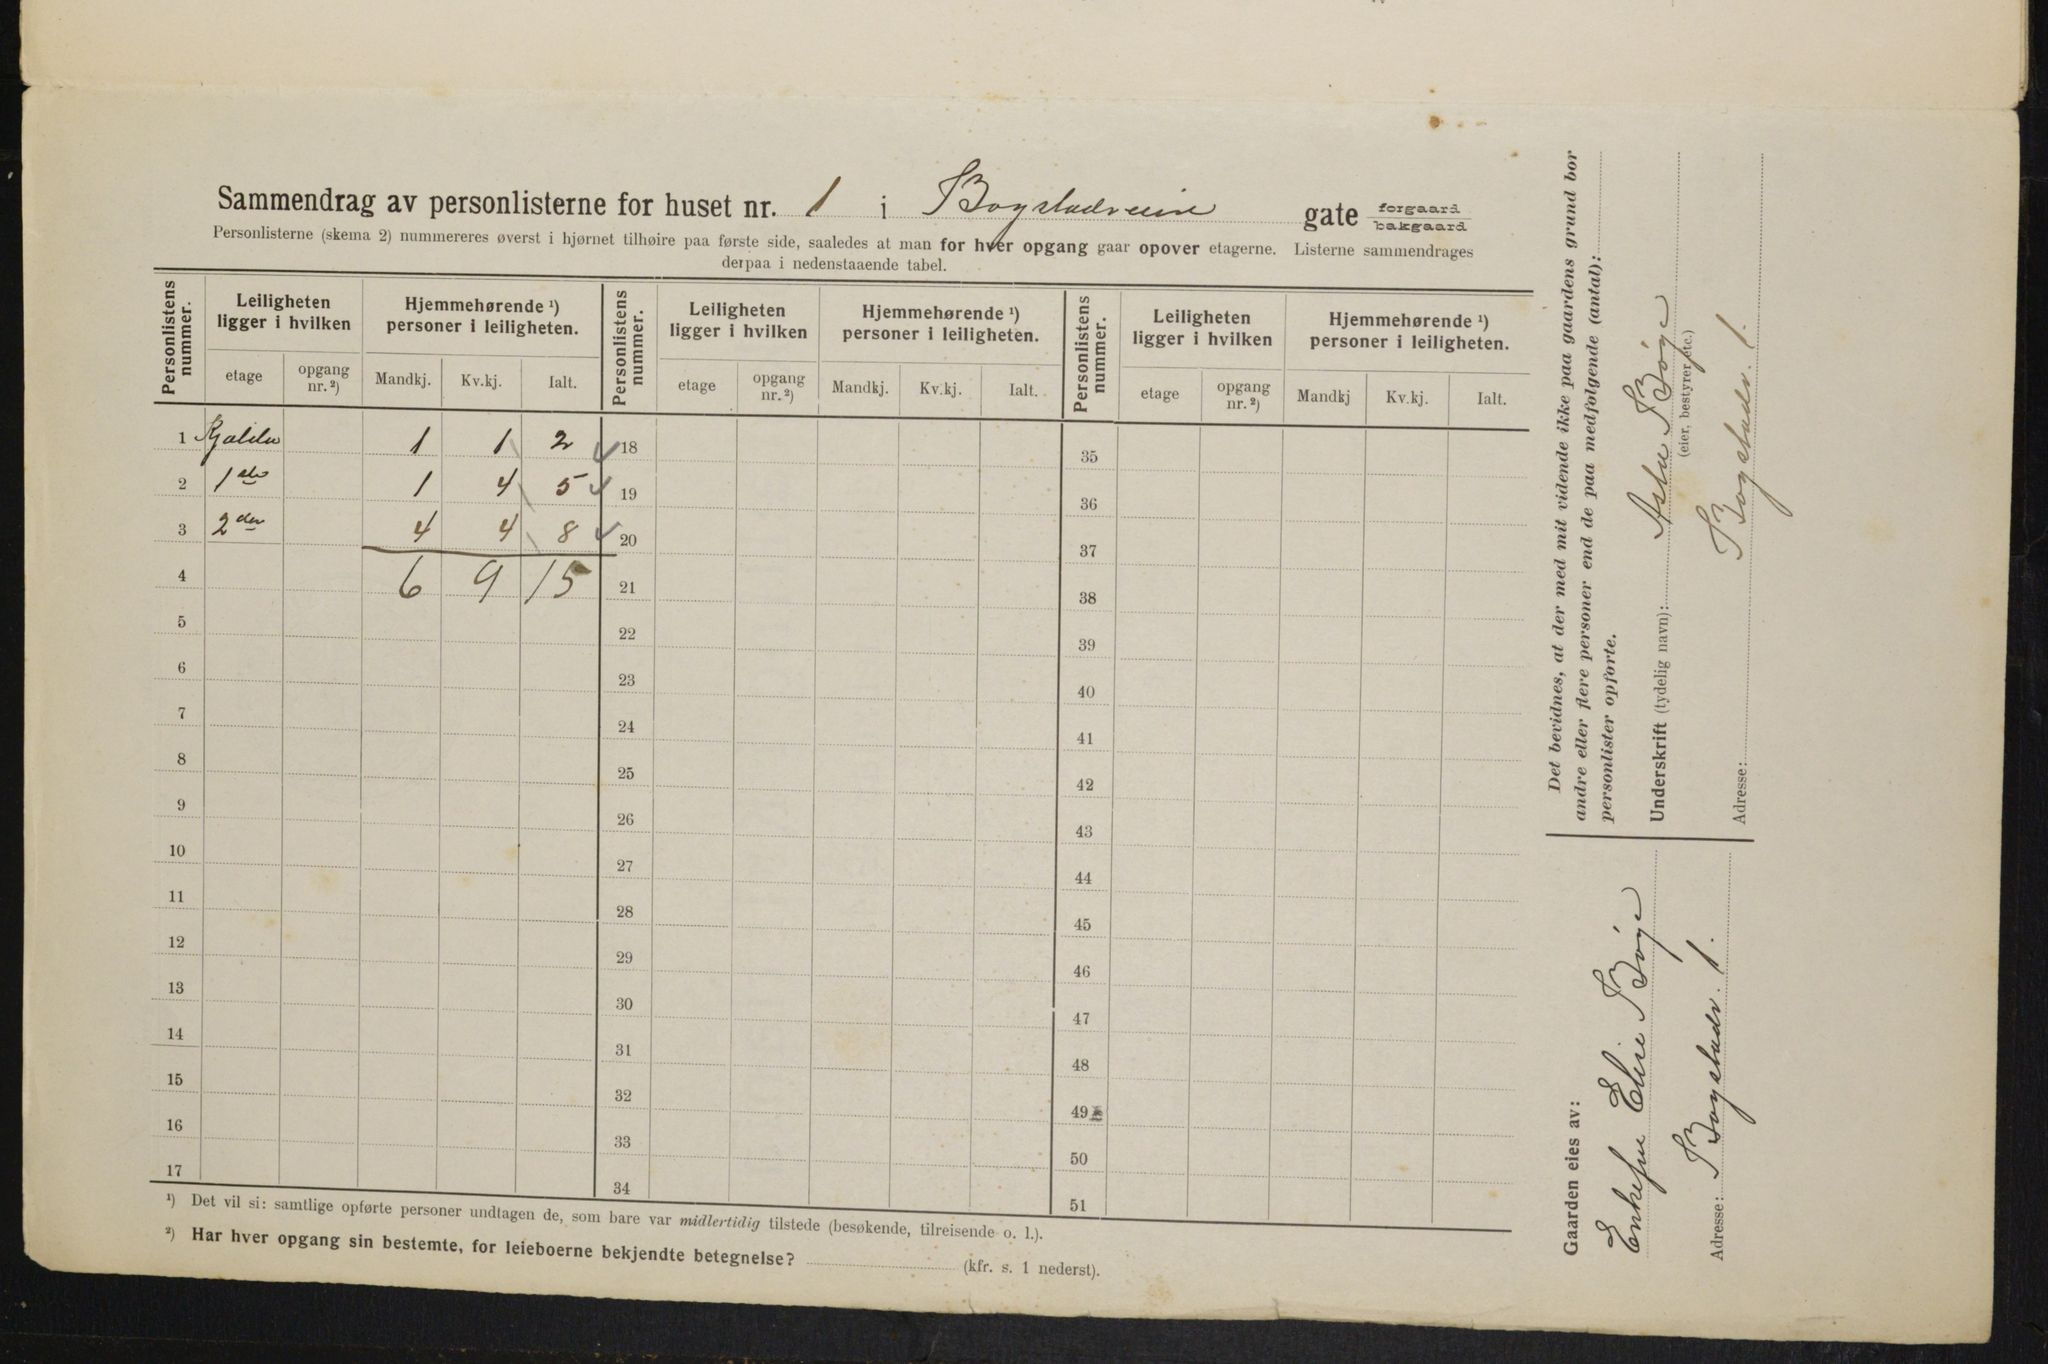 Sammendrag av personlisterne for huset nr. 1 i Bogstadveien gate forgaard bakgaard
Personlisterne (skema 2) nummereres øverst i hjørnet tilhøire paa første side, saaledes at man for hver opgang gaar opover etagerne. Listerne sammendrages
derpaa i nedenstaaende tabel.
Personlistens nummer. Leiligheten ligger i hvilken Hjemmehørende ¹) personer i leiligheten. Personlistens nummer. Leiligheten ligger i hvilken Hjemmehørende ¹) personer i leiligheten. Personlistens nummer. Leiligheten ligger i hvilken Hjemmehørende ¹) personer i leiligheten.
etage opgang nr. ²) Mandkj. Kv.kj. Ialt. etage opgang nr. ²) Mandkj. Kv.kj. Ialt. etage opgang nr. ²) Mandkj Kv.kj. Ialt.
1 Kjælder 1 1 2 18 35
2 1ste 1 4 5 19 36
3 2den 4 4 8 20 37
4 6 9 15 21 38
5 22 39
6 23 40
7 24 41
8 25 42
9 26 43
10 27 44
11 28 45
12 29 46
13 30 47
14 31 48
15 32 49
16 33 50
17 34 51
¹) Det vil si: samtlige opførte personer undtagen de, som bare var midlertidig tilstede (besøkende, tilreisende o. l.).
²) Har hver opgang sin bestemte, for leieboerne bekjendte betegnelse? (kfr. s. 1 nederst).
Det bevidnes, at der med mit vidende ikke paa gaardens grund bor
andre eller flere personer end de paa medfølgende (antal):
personlister opførte.
Underskrift (tydelig navn): Asta Bøge
(eier, bestyrer etc.)
Adresse: Bogstadv. 1.
Gaarden eies av:
Enkefru Elise Bøge
Adresse: Bogstadv. 1.